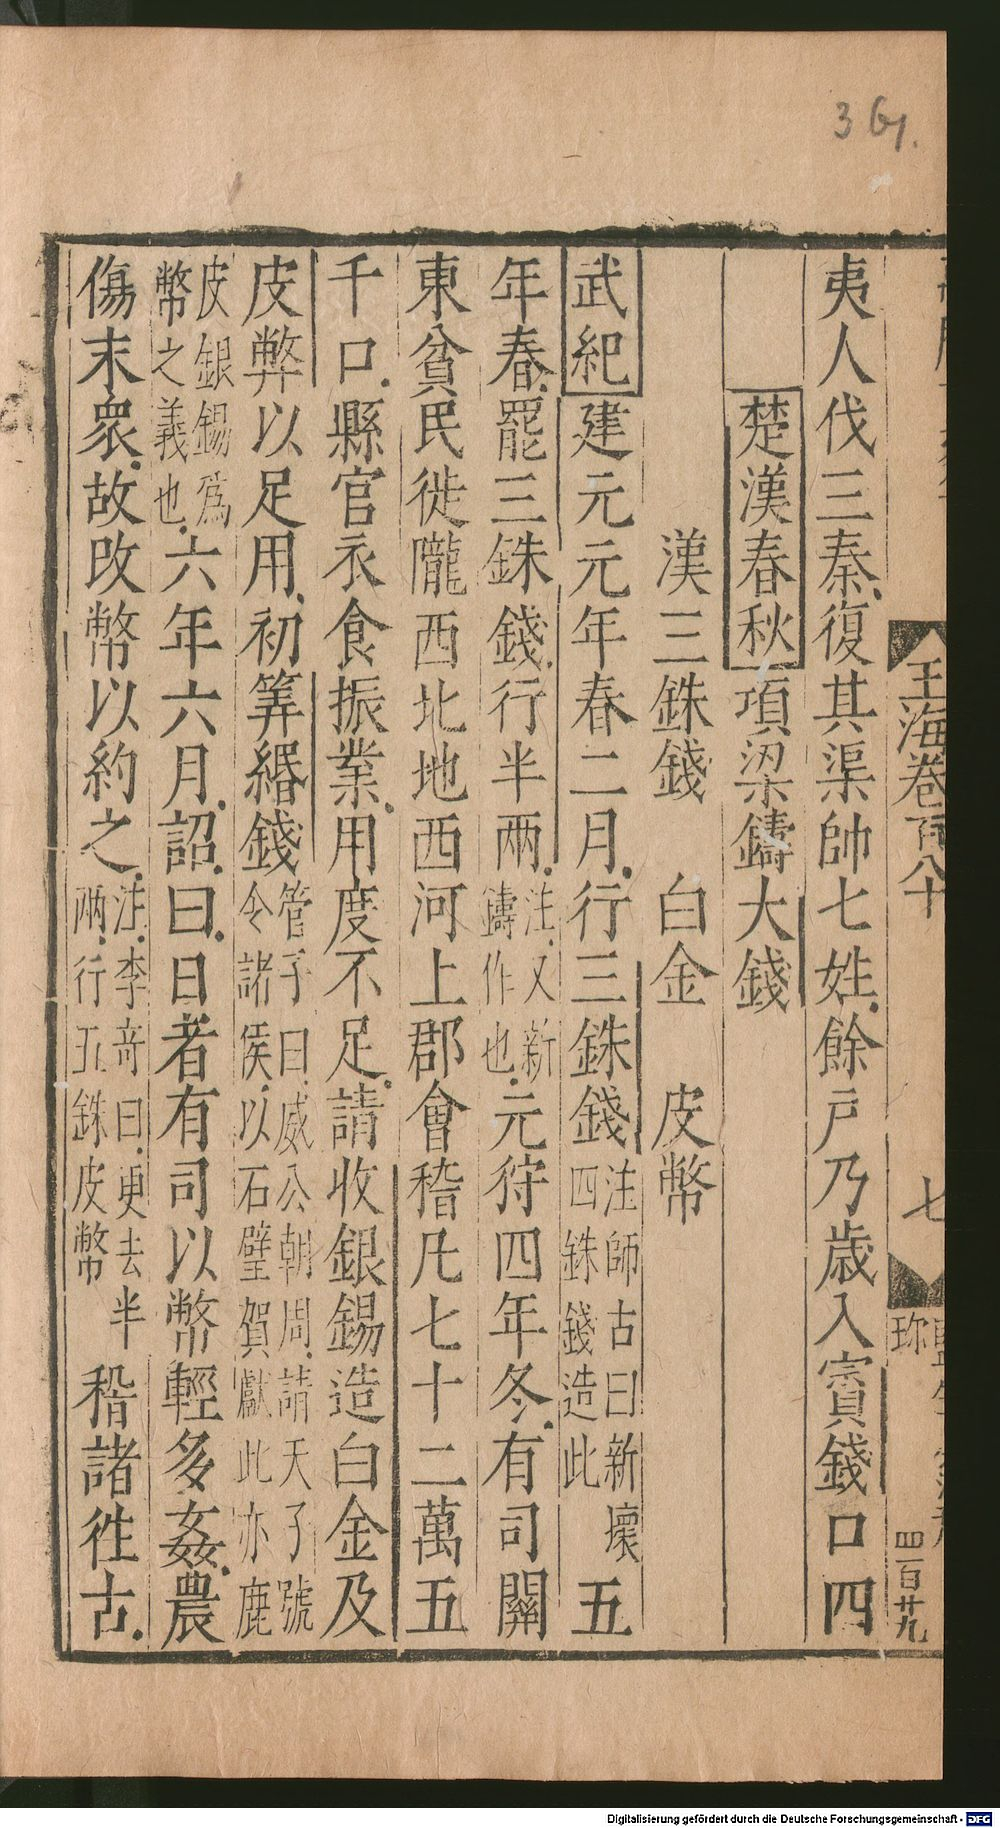 361.
夷人伐三秦復其渠帥七姓餘戶乃歳入賓錢口四
楚漢春秋項梁鑄大錢
漢三銖錢 白金 皮幣
武紀建元元年春二月行三銖錢注師古曰新壞四銖錢造此五
年春罷三銖錢行半兩注又新鑄作也元狩四年冬有司關
東貧民徙隴西北地西河上郡會稽凡七十二萬五
千口縣官衣食振業用度不足請收銀錫造白金及
皮弊以足用初筭緡錢管子曰威公朝周請天子號令諸侯以石璧賀獻此亦鹿
皮銀錫爲幣之義也六年六月詔曰日者有司以幣輕多姦農
傷末衆故改幣以約之注李竒曰更去半兩行五銖皮幣稽諸徃古
玉海卷百八十
七
珎
四百廿九
Digitalisierung gefördert durch die Deutsche Forschungsgemeinschaft - DFG